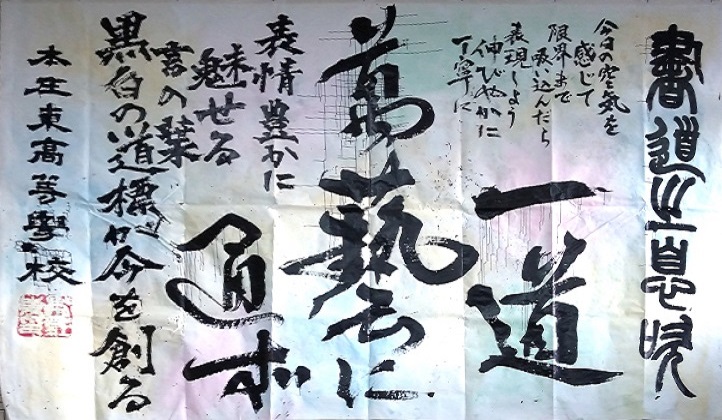 書道之息吹
今日の空氣を
感じて
限界まで
吸い込んだら
表現しよう
伸びやかに
丁寧に
一道
萬藝に
通ず
表情豊かに
魅せる
言の葉
黒白の道標が今を創る
本庄東高等學校